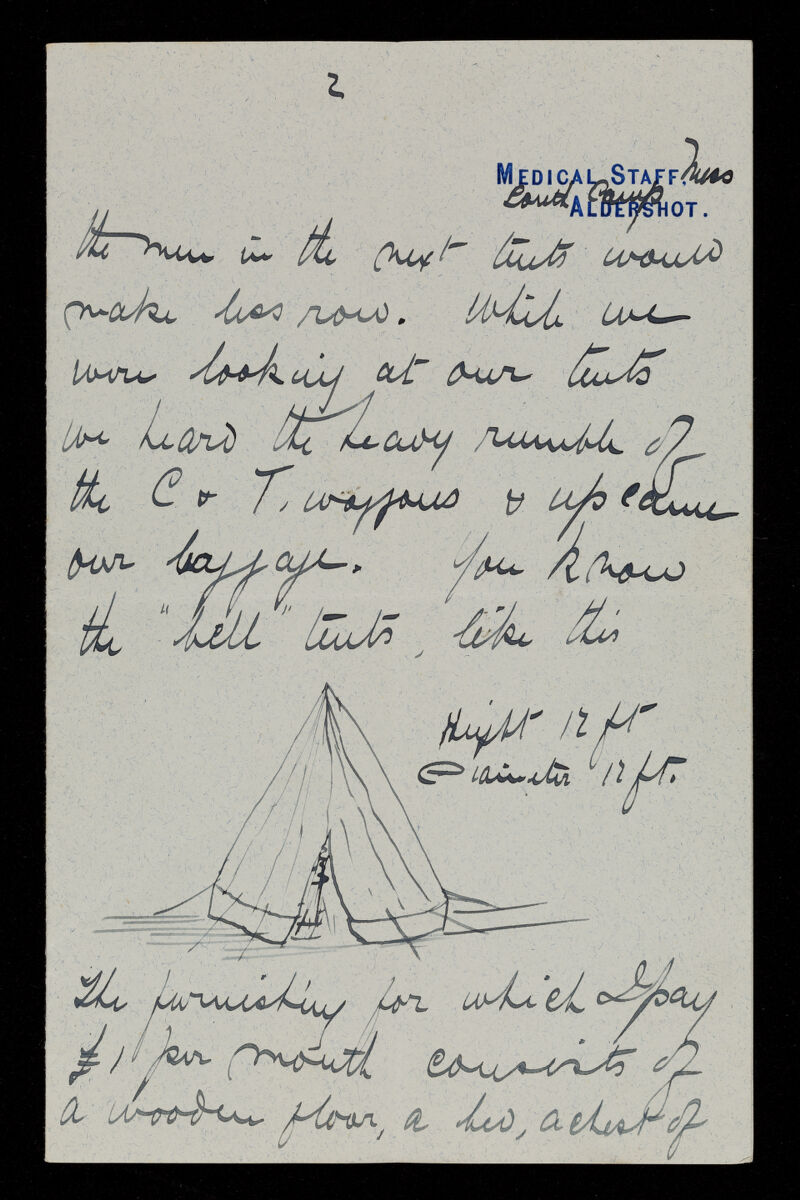 2
MEDICAL STAFF, Mess
South Camp
ALDERSHOT.
the men in the next tents would
make less row. While we
were looking at our tents
we heard the heavy rumble of
the C & T. waggons & up came
our baggage. You know
the "bell" tents, like this
Height 12 ft
Diameter 12 ft.
The furnishing for which I pay
£1 per month consists of
a wooden floor, a bed, a chest of